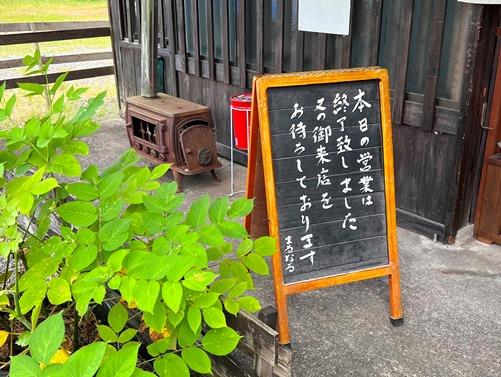 本日の営業は
終了致しました
又の御来店を
お待ちしております
まるなる